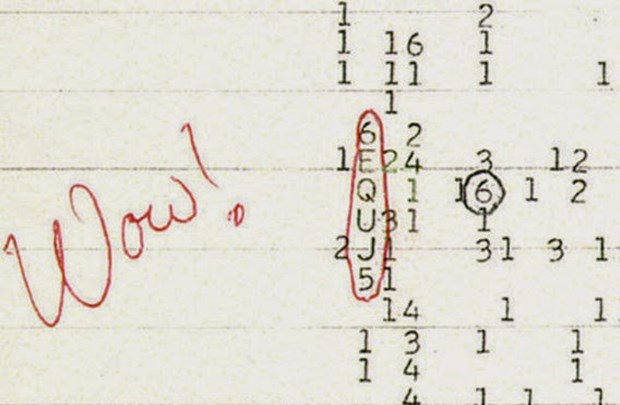 1 2
1 16 1
1 11 1 1
1
6 2
1E24 3 12
Q 1 16 1 2
U31 1
2J1 31 3 1
51
14 1 1
1 3 1 1
1 4 1
4 1 1 1
Wow!